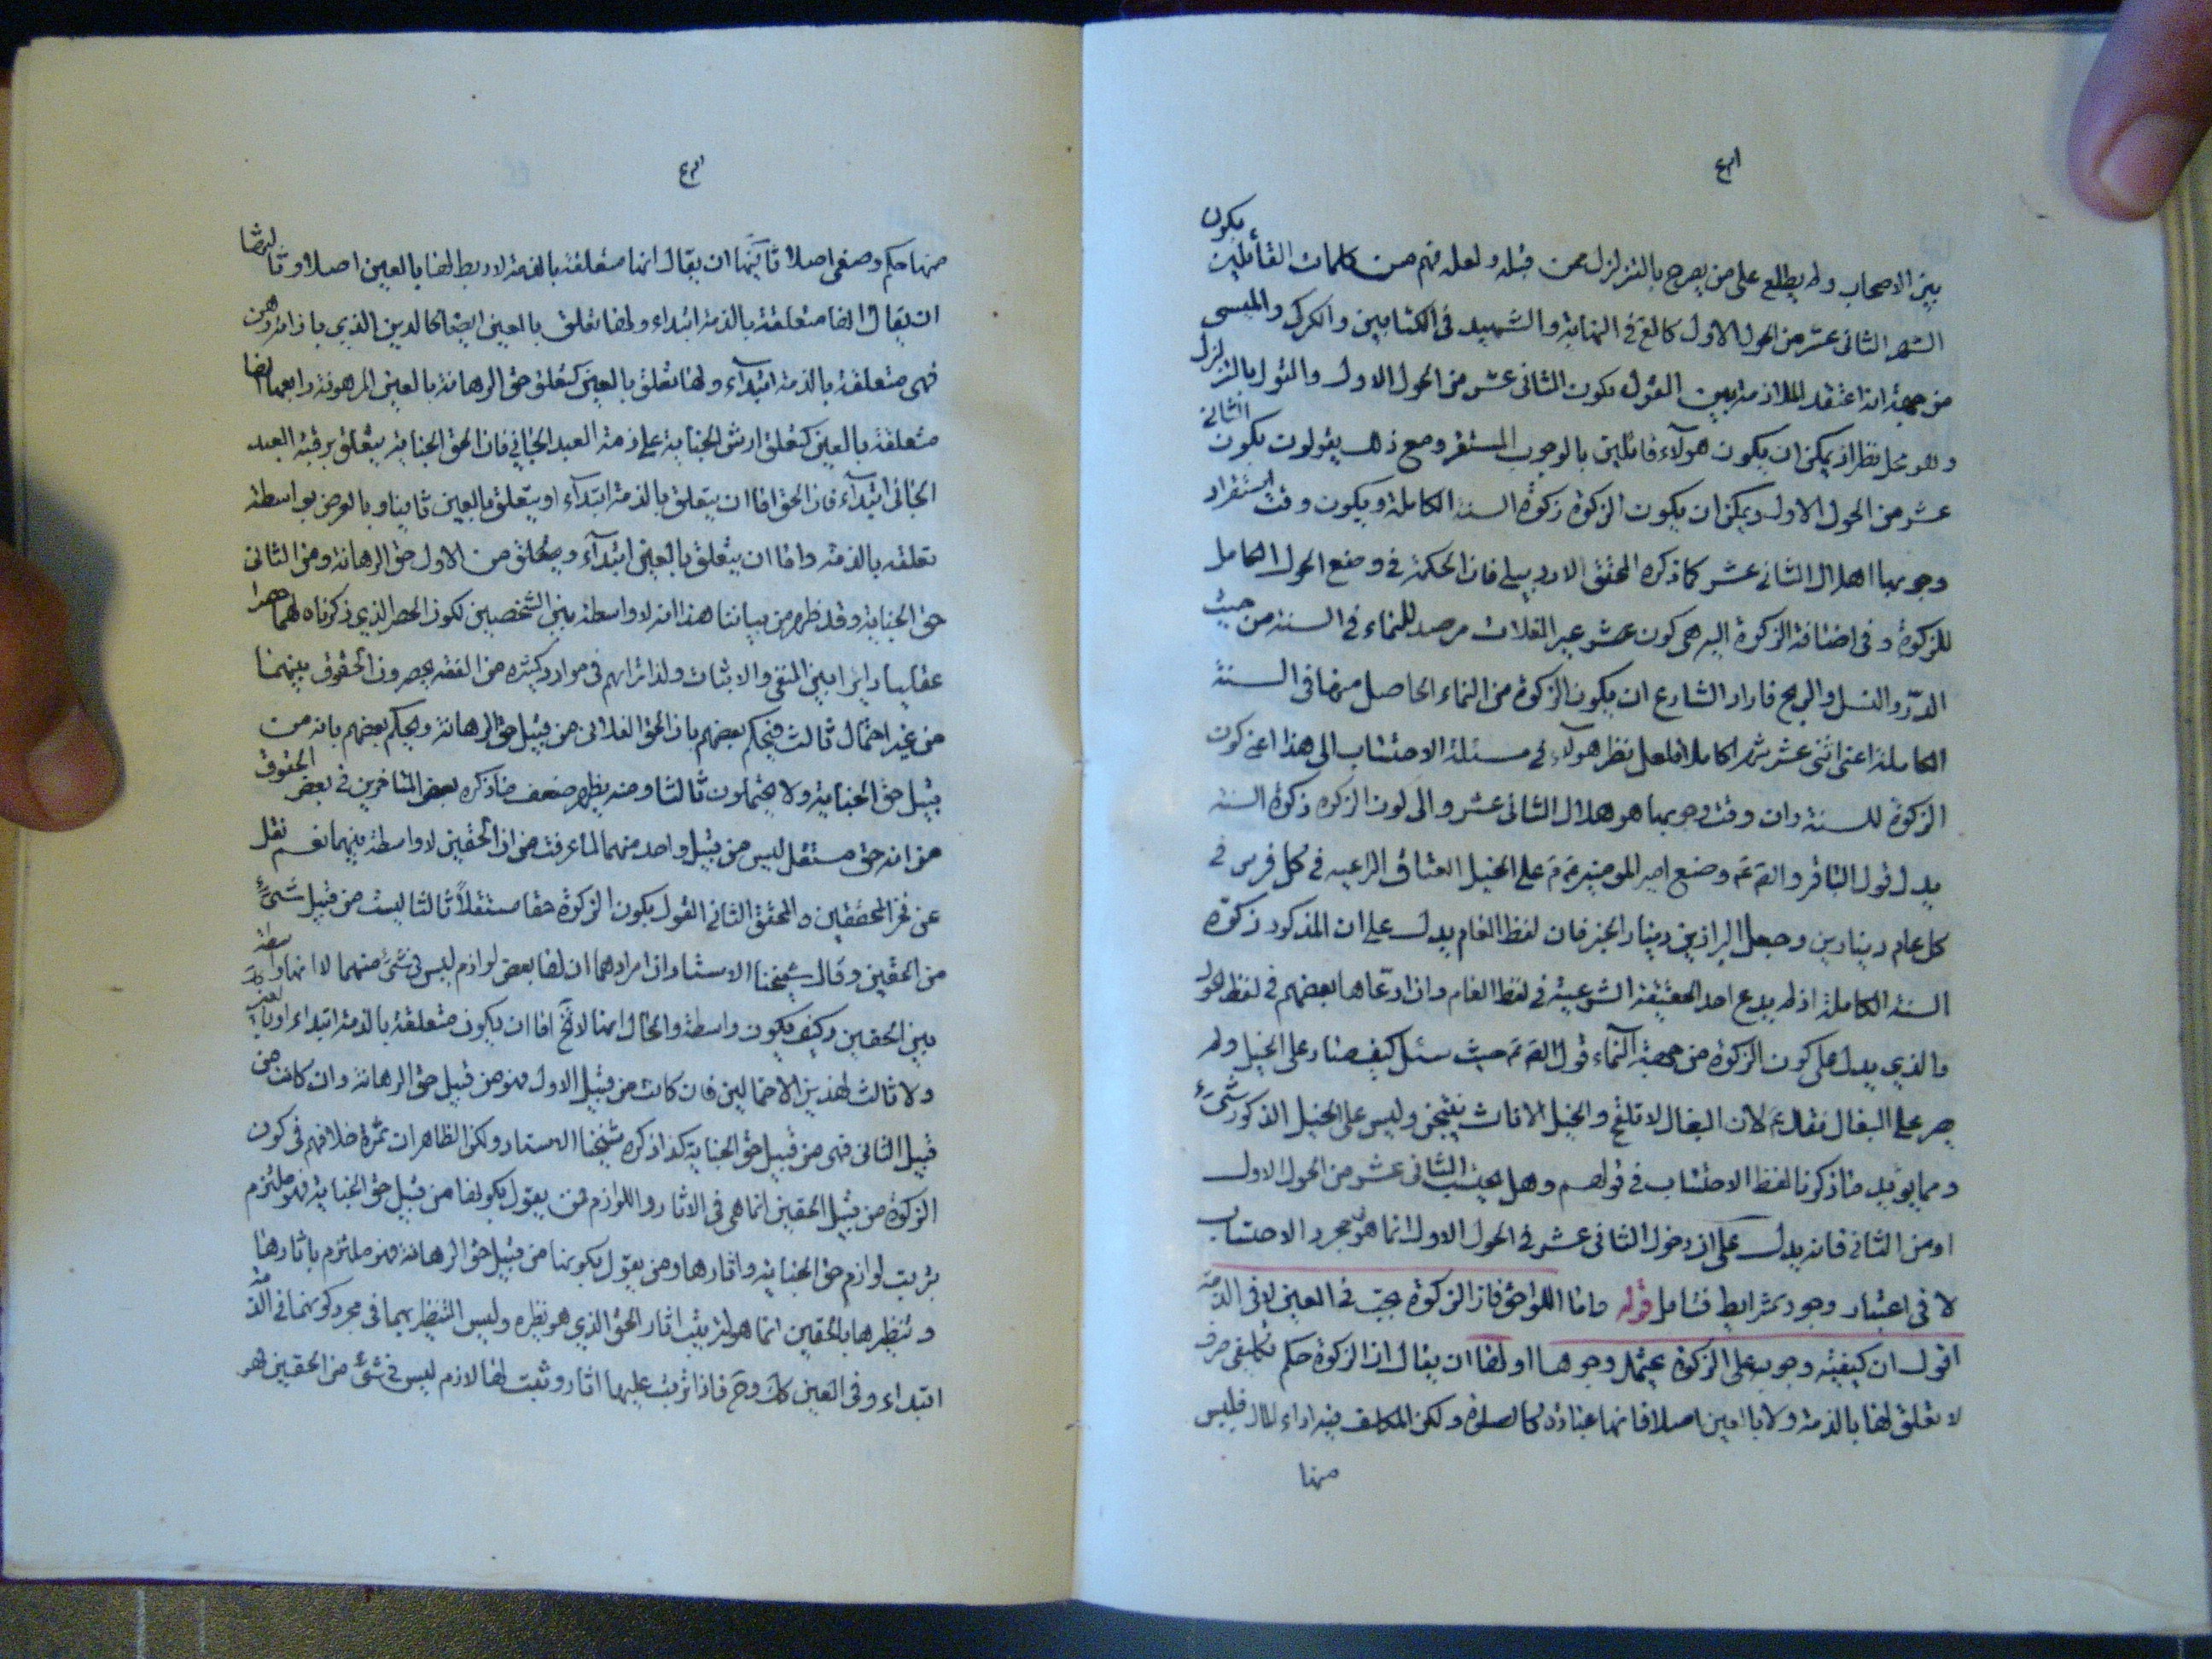 بين الاصحاب ولم يطلع على من يصرح بالتزلزل ممن قبله ولعله فهم من كلمات القائلين بكون
الشهر الثانى عشر من الحول الاول كالع فى النهاية والشهيد فى الكتابين والكركى والميسى
من جهة انه اعتقد الملازمة بين القول بكون الثانى عشر من الحول الاول والقول بالتزلزل
وهو محل نظر اذ يمكن ان يكون هولآء قائلين بالوجوب المستقر ومع ذلك يقولون بكون الثانى
عشر من الحول الاول ويمكن ان يكون الزكوة زكوة السنة الكاملة ويكون وقت استقرار
وجوبها اهلال الثانى عشر كما ذكره المحقق الاردبيلى فان الحكمة فى وضع الحول الكامل
للزكوة وفى اضافة الزكوة اليه هى كون عشو غير الغلات مرصد للنماء فى السنة من حيث
الدرّ والنسل والربح فاراد الشارع ان يكون الزكوة من النماء الحاصل منها فى السنة
الكاملة اعنى اثنى عشر شهرا كاملا فلعل نظر هولآء فى مسئلة الاحتساب الى هذا اعنى كون
الزكوة للسنة وان وقت وجوبها هو هلال الثانى عشر والى كون الزكوة زكوة السنة
يدل قول الباقر والصم عم وضع امير المومنين عم على الخيل العتاق الراعيه فى كل فرس فى
كل عام دينارين وجعل البراذين دينار الخبر فان لفظ العام يدل على ان المذكور زكوة
السنة الكاملة اذ لم يدع احد الحقيقة الشرعية فى لفظ العام وان ادّعاها بعضهم فى لفظ الحول
والذى يدل على كون الزكوة من جهة النمآء قول الصم عم حيث سئل كيف صار على الخيل ولم
يصر على البغال فقال عم لان البغال لا تلقح والخيل الاناث ينتجن وليس على الخيل الذكور شىء
ومما يويد ما ذكرنا لفظ الاحتساب فى قولهم وهل يحتسب الثانى عشر من الحول الاول
او من الثانى فانه يدل على ان دخول الثانى عشر فى الحول الاول انما هو مجرد الاحتساب
لا فى اعتبار وجود شرايط فتامل قوله واما اللواحق فان الزكوة يجب فى العين لا فى الذمة
اقول ان كيفية وجوب على الزكوة يحتمل وجوها اولها ان يقال ان الزكوة حكم تكليفى صرف
لا تعلق لها بالذمة ولا بالعين اصلا فانها عبادة كالصلوة ولكن المكلف فيه اداء المال فليس
منها
منها حكم وصفى اصلا ثانيها ان يقال انها متعلقة بالذمة لا ربط لها بالعين اصلا وثالثها
ان يقال انها متعلقة بالذمة ابتداء ولها تعلق بالعين ايضا كالدين الذى بازائه رهن
فهى متعلقة بالذمة ابتدآء ولها تعلق بالعين كتعلق حق الرهانة بالعين المرهونة رابعها انها
متعلقة بالعين كتعلق ارش الجناية على ذمة العبد الجانى فان الحق الجناية يتعلق برقبة العبد
الجانى ابتدآء فان الحق اما ان يتعلق بالذمة ابتدآء او يتعلق بالعين ثانيا وبالعرض بواسطة
تعلقه بالذمة واما ان يتعلق بالعين ابتدآء من الاول حق الرهانة ومن الثانى
حق الجناية وقد ظهر من بياننا هذا انه لا واسطة بين الشخصين لكون الحصر الذى ذكرناه لهما حصرا
عقليا دايرا بين النفى والاثبات ولذا تراهم فى موارد كثيره من الفقه يحصرون الحقوق بينهما
من غير احتمال ثالث فيحكم بعضهم بان الحق الفلانى من قبيل حق الرهانة ويحكم بعضهم بانه من
قبيل حق الجناية ولا يحتملون ثالثا ومنه يظهر ضعف ما ذكره بعض المتاخرين فى بعض الحقوق
من انه حق مستقل ليس من قبيل واحد منهما لما عرفت من ان الحقين لا واسطة بينهما نعم نقل
عن فخر المحققين والمحقق الثانى القول بكون الزكوة حقا مستقلاً ثالثا ليست من قبيل شىء
من الحقين وقال شيخنا الاستاد ان مرادهما ان لها بعض لوازم ليس فى شىء منهما لا انها واسطة
بين الحقين وكيف يكون واسطة والحال انها لا تخ اما ان يكون متعلقة بالذمة ابتداء او بالعين كك
ولا ثالث لهذين الاحتمالين فان كانت من قبيل الاول فهو من قبيل حق الرهانة وان كانت من
قبيل الثانى فهى من قبيل حق الجناية كذا ذكره شيخنا الاستاد ولكن الظاهر ان ثمرة خلافهم فى كون
الزكوة من قبيل الحقين انما هى فى الاثار واللوازم فمن يقول بكونها من قبيل حق الجناية فهو ملتزم
بترتب لوازم حق الجناية واثارها ومن يقول بكونها من قبيل حق الرهانة فهو ملتزم باثارها
وتنظيرها بالحقين انما هو لترتيب اثار الحق الذى هو نظيره وليس التنظير بهما فى مجرد كونها فى الذمة
ابتداء وفى العين كك وح فاذا ترتب عليها اثار وثبت لها لازم ليس فى شىء من الحقين فهو